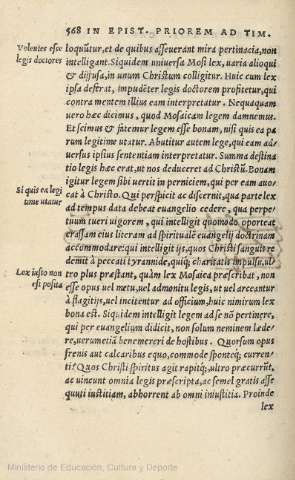 568 IN EPIST. PRIOREM AD TIM.
Volentes esse
legis doctores
loquũtur, et de quibus asseuerant mira pertinacia, non
intelligant. Siquidem uniuersa Mosi lex, uaria alioqui
& diffusa, in unum Christum colligitur. Huic cum lex
ipsa desierat, impudẽter legis doctorem profitetur, qui
contra mentem illius eam interpretatur. Nequaquam
uero hæc dicimus, quod Mosaicam legem damnemus.
Et scimus & fatemur legem esse bonam, nisi quis ea pa
rum legitime utatur. Abutitur autem lege, qui eam ad-
uersus ipsius sententiam interpretatur. Summa destina
tio legis hæc erat, ut nos deduceret ad Christũ. Bonam
Si quis ea legi
time utatur
igitur legem sibi uertit in perniciem, qui per eam auo-
cat à Christo. Qui perspicit ac discernit, qua parte lex
ad tempus data debeat euangelio cedere, qua perpe-
tuum tueri uigorem, qui intelligit quomodo, oporteat
crassam eius literam ad spirituale euangelij doctrinam
accommodare: qui intelligit ijs, quos Christi sanguis re
demit à peccati tyrannide, quiq; charitatis impulsu, ul
Lex iusto non
est posita
tro plus præstant, quàm lex Mosaica præscribat, non
esse opus uel metu, uel admonitu legis, ut uel arceantur
à flagitijs, uel incitentur ad officium, huic nimirum lex
bona est. Siquidem intelligit legem ad se nõ pertinere,
qui per euangelium didicit, non solum neminem læde
re, uerumetiã benemereri de hostibus. Quorsum opus
frenis aut calcaribus equo, commode sponteq; curren-
ti? Quos Christi spiritus agit rapitq;, ultro præcurrũt,
ac uincunt omnia legis præscripta, ac semel gratis asse
quuti iustitiam, abhorrent ab omni iniustitia. Proinde
lex
Ministerio de Educación, Cultura y Deporte